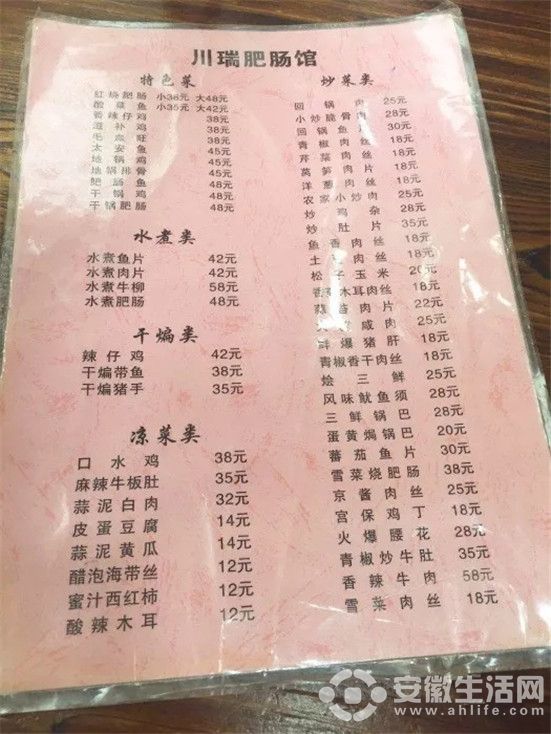 川瑞肥肠馆
特色菜
红烧肥肠 小38元 大48元
酸菜鱼 小35元 大42元
香辣仔鸡 38元
滋补鸡 38元
毛血旺 38元
太安鱼 45元
地锅鸡 45元
地锅排骨 45元
肥肠鱼 48元
干锅鸡 48元
干锅肥肠 48元
水煮类
水煮鱼片 42元
水煮肉片 42元
水煮牛柳 58元
水煮肥肠 48元
干煸类
辣仔鸡 42元
干煸带鱼 38元
干煸猪手 35元
凉菜类
口水鸡 38元
麻辣牛板肚 35元
蒜泥白肉 32元
皮蛋豆腐 14元
蒜泥黄瓜 14元
醋泡海带丝 12元
蜜汁西红柿 12元
酸辣木耳 12元
炒菜类
回锅肉 25元
小炒脆骨 28元
回锅鱼片 30元
青椒肉丝 18元
芹菜肉丝 18元
莴笋肉片 18元
洋葱肉丝 18元
农家小炒肉 25元
炒鸡杂 28元
炒肚片 35元
鱼香肉丝 18元
土 肉丝 18元
松子玉米 20元
香 木耳肉丝 18元
蒜苔肉片 22元
咸肉 25元
爆猪肝 18元
青椒香干肉丝 18元
烩三鲜 25元
风味鱿鱼须 28元
三鲜锅巴 28元
蛋黄焗锅巴 20元
番茄鱼片 30元
雪菜烧肥肠 38元
京酱肉丝 25元
宫保鸡丁 18元
火爆腰花 28元
青椒炒牛肚 35元
香辣牛肉 58元
雪菜肉丝 18元
安徽生活网
www.ahlife.com